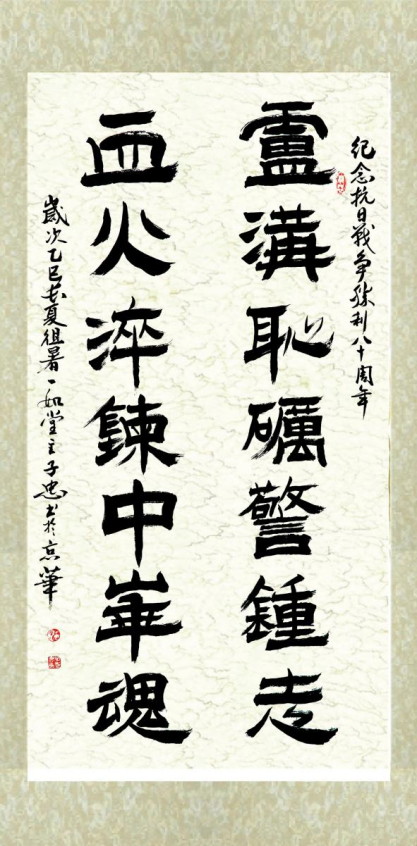 紀念抗日戰爭勝利八十周年
盧溝恥礪警鍾志
血火淬鍊中華魂
歲次乙巳長夏徂暑一如堂主子忠書於京華